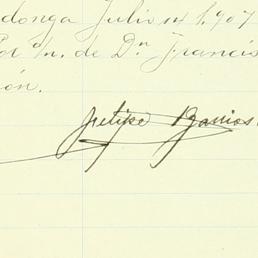 donga Julio 14 1.907
Por Dn. de Dn Francis
ón.
Felipe Barrios